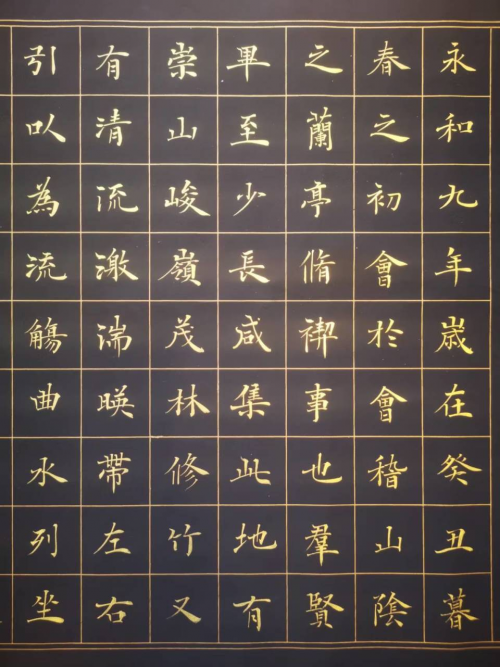 永和九年歲在癸丑暮
春之初會於會稽山陰
之蘭亭脩禊事也羣賢
畢至少長咸集此地有
崇山峻嶺茂林修竹又
有清流激湍暎帶左右
引以為流觴曲水列坐